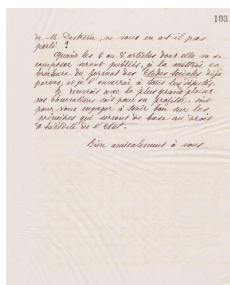 193
de M. Deskein, ne vous en a-t-il pas
parlé ?
Quand les 6 ou 8 articles dont elle va se
composer seront publiés, je la mettrai en
brochure du format des Etudes Sociales déjà
parues, et je l'enverrai à tous les députés.
Je recevrais avec le plus grand plaisir
vos observations soit pour en profiter, soit
pour vous engager à tenir bon sur les
principes qui servent de base au droit
d'hérédité de l'Etat.
Bien amicalement à vous